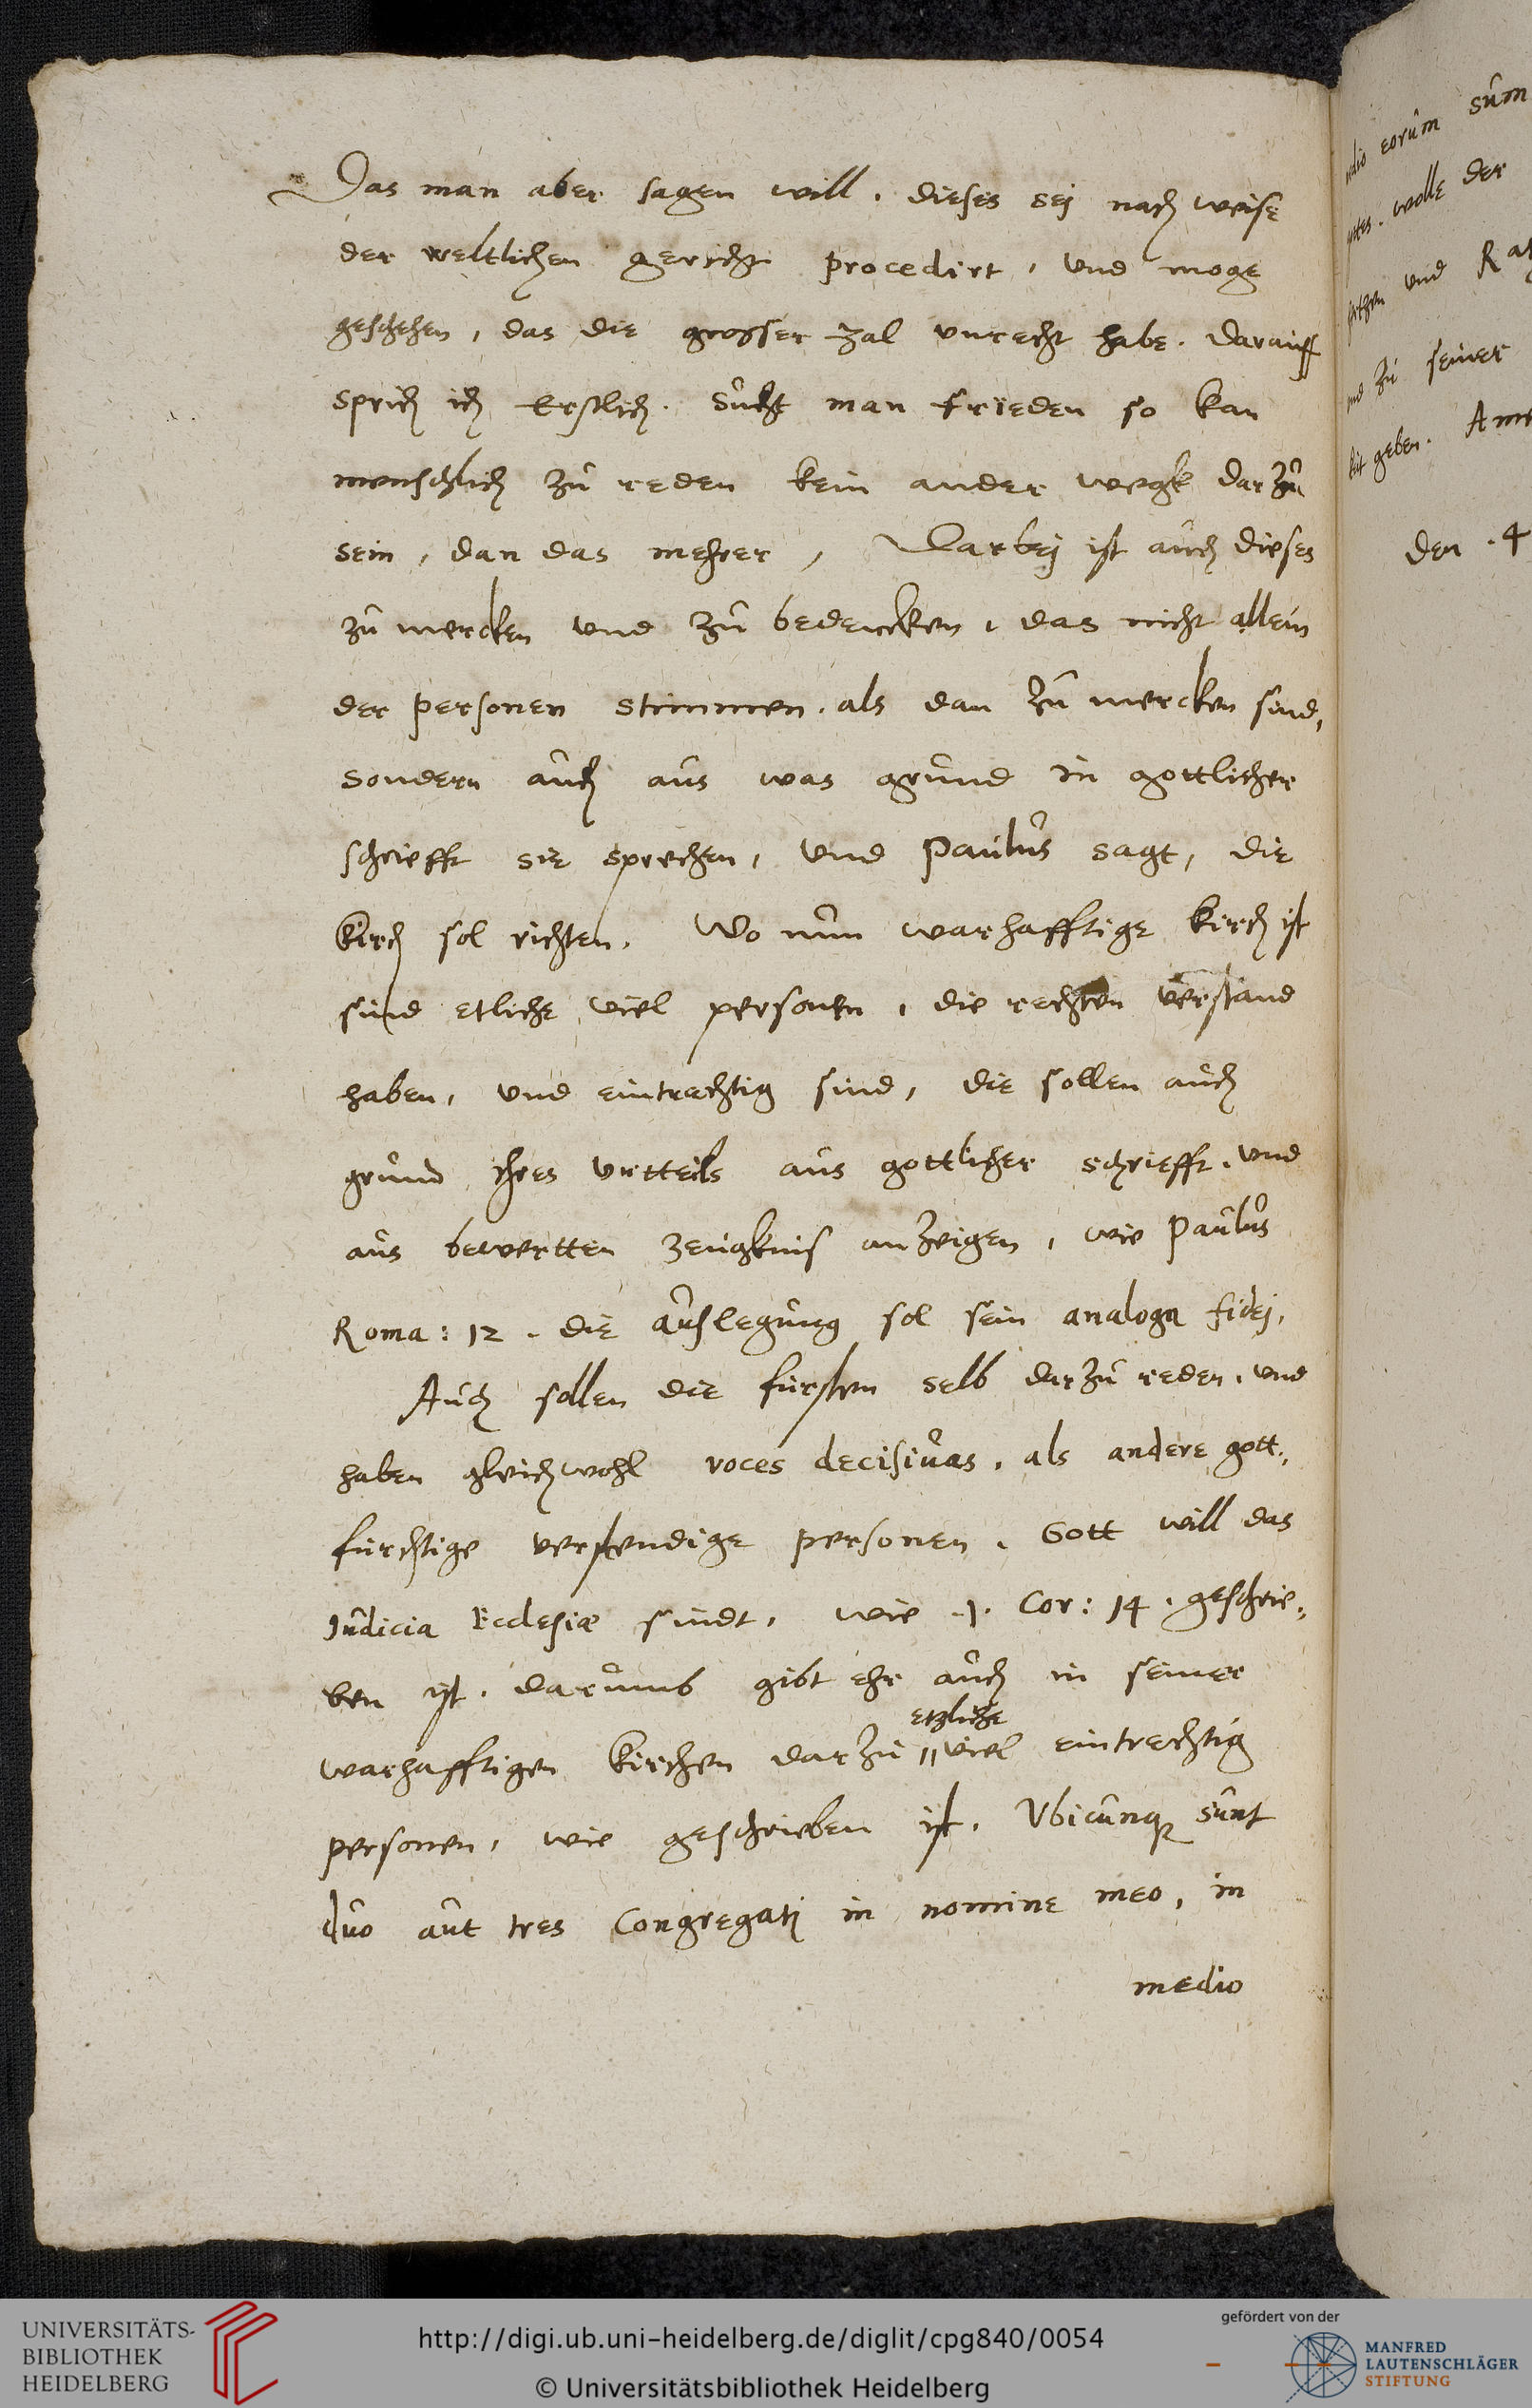 Das man aber sagen will. dieses sej nach weise
der weltlichen gericht procedirt, vnd moge
geschehen, das die grosser zal vnrecht habe. darauff
sprich ich Erstlich. Sucht man frieden so kan
menschlich zu reden kein ander wegk darzu
sein, dan das mehrer, Darbej ist auch dieses
zu mercken vnd zu bedencken, das nicht allein
der personen stimmen. als dan zu mercken sind,
sondern auch aus was grund in gottlicher
schriefft sie sprechen, vnd Paulus sagt, die
kirch sol richten. Wo nun warhafftige kirch ist
sind etliche viel personen, die rechten verstand
haben, vnd eintrechtig sind, die sollen auch
grund ihres vrtteils aus gottlicher schriefft. vnd
aus bewertten zeugknis anzeigen, wie Paulus
Roma: 12. die auslegung sol sein analoga fidej.
Auch sollen die fursten selb darzu reden, vnd
haben gleichwohl voces decisiuas, als andere gott,
furchtige verstendige personen. Gott will das
Iudicia Ecclesiæ sindt, wie .1. Cor: 14. geschrie,
ben ist. darumb gibt ehr auch in seiner
etzliche
warhafftigen kirchen darzu viel eintrechtig
personen, wie geschrieben ist. Vbicunq sunt
duo aut tres Congregatj in nomine meo, in
medio
eorum sum
wolle der
vnd
zu seiner
geben.
den .4
UNIVERSITÄTS-
BIBLIOTHEK
HEIDELBERG
http://digi.ub.uni-heidelberg.de/diglit/cpg840/0054
© Universitätsbibliothek Heidelberg
gefördert von der
MANFRED
LAUTENSCHLÄGER
STIFTUNG